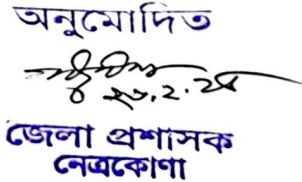 অনুমোদিত
২৩.২.২৪
জেলা প্রশাসক
নেত্রকোণা